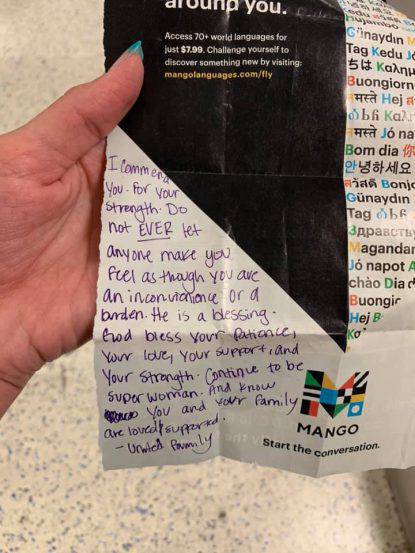 around you.
Access 70+ world languages for
just $7.99. Challenge yourself to
discover something new by visiting:
mangolanguages.com/fly
I commend
you. For your
strength. Do
not EVER let
anyone make you
feel as though you are
an inconvenience or a
burden. He is a blessing.
God bless your patience,
your love, your support, and
your strength. Continue to be
super woman. And know
you and your family
are loved & supported.
- United family
MANGO
Start the conversation.
Hujambo
Günaydın
Tag Kedu Jó
ちは Καλημ
Buongiorn
नमस्ते Hej
Καλ
नमस्ते Jó na
Bom dia 你
안녕하세요
สวัสดี Bonj
Günaydın
Tag
Здравству
Magandar
Jó napot A
chào Dia d
Buongior
Hej B